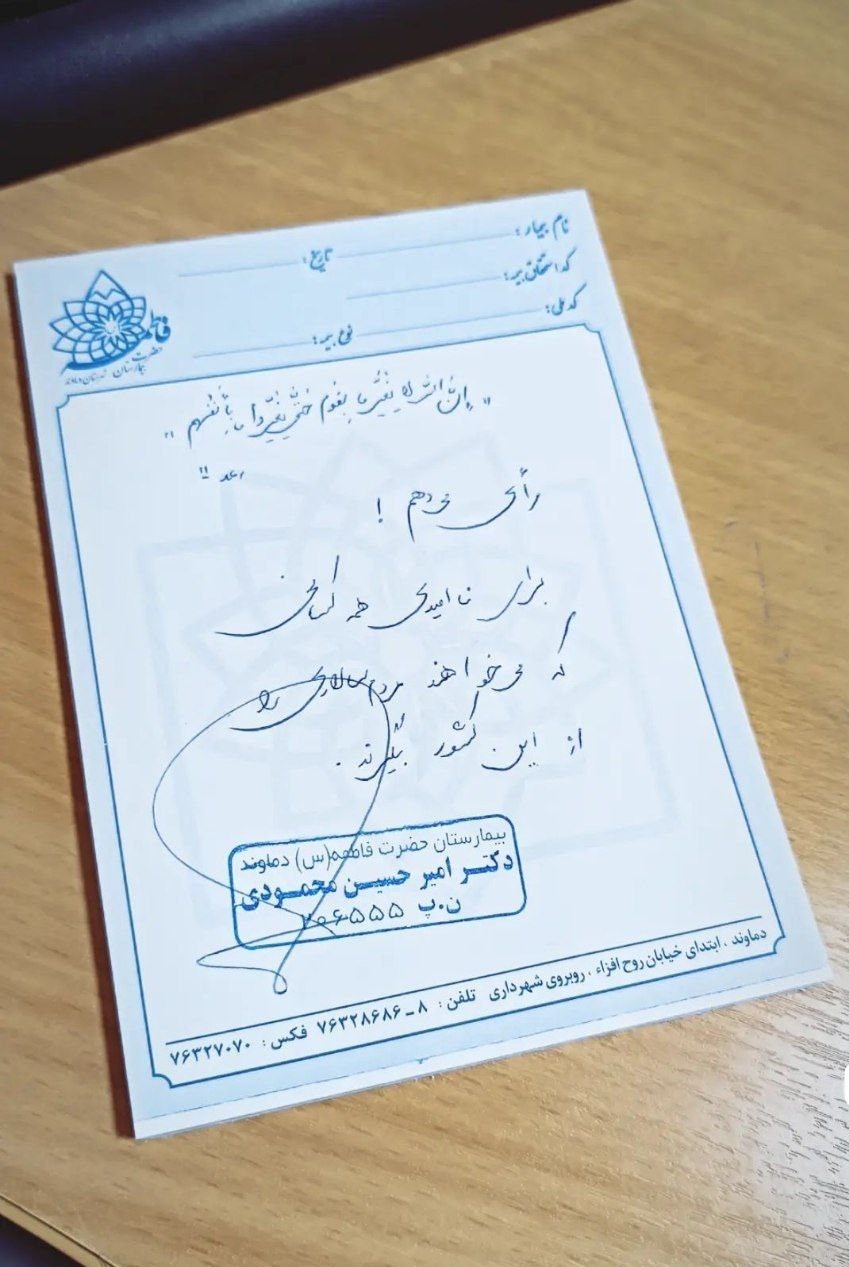 نام بیمار: تاریخ:
کد استحقاق بیمه:
کد ملی: نوع بیمه:
حضرت فاطمه
بیمارستان شهرستان دماوند
"إِنَّ اللّه لا یُغَیِّرُ ما بِقَومٍ حَتّی یُغَیِّروا ما بِأَنفُسِهِم"
رعد ۱۱
رأی می‌دهم!
برای ناامیدی همه کسانی
که می‌خواهند مردم‌سالاری را
از این کشور بگیرند.
بیمارستان حضرت فاطمه(س) دماوند
دکتر امیر حسین محمودی
ن.پ ۲۰۶۵۵۵
دماوند، ابتدای خیابان روح افزاء، روبروی شهرداری تلفن: ۸-۷۶۳۲۸۶۸۶ فکس: ۷۶۳۲۷۰۷۰